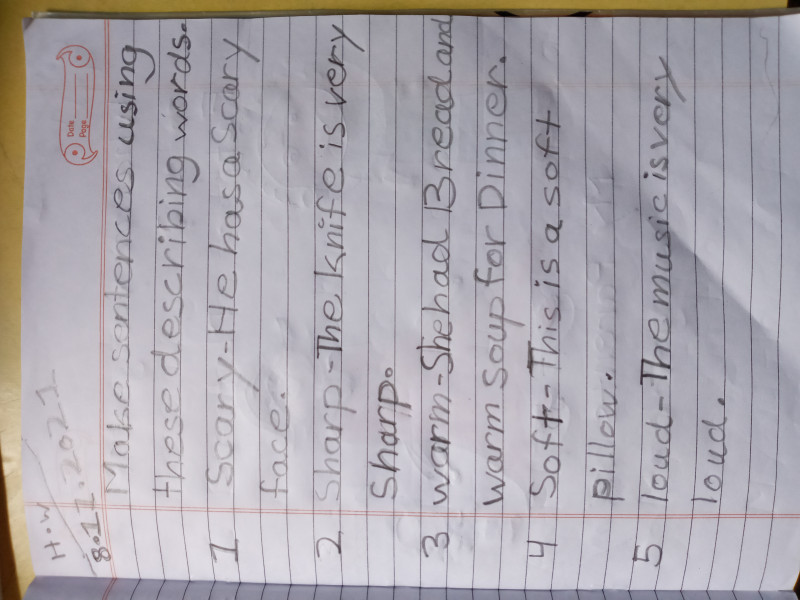 H.W
8.11.2021
Date
Page
Make sentences using
these describing words.
1 Scary-He has a scary
face.
2 Sharp-The knife is very
Sharp.
3 warm-She had Bread and
warm soup for Dinner.
4 Soft-This is a soft
pillow.
5 loud-The music is very
loud.